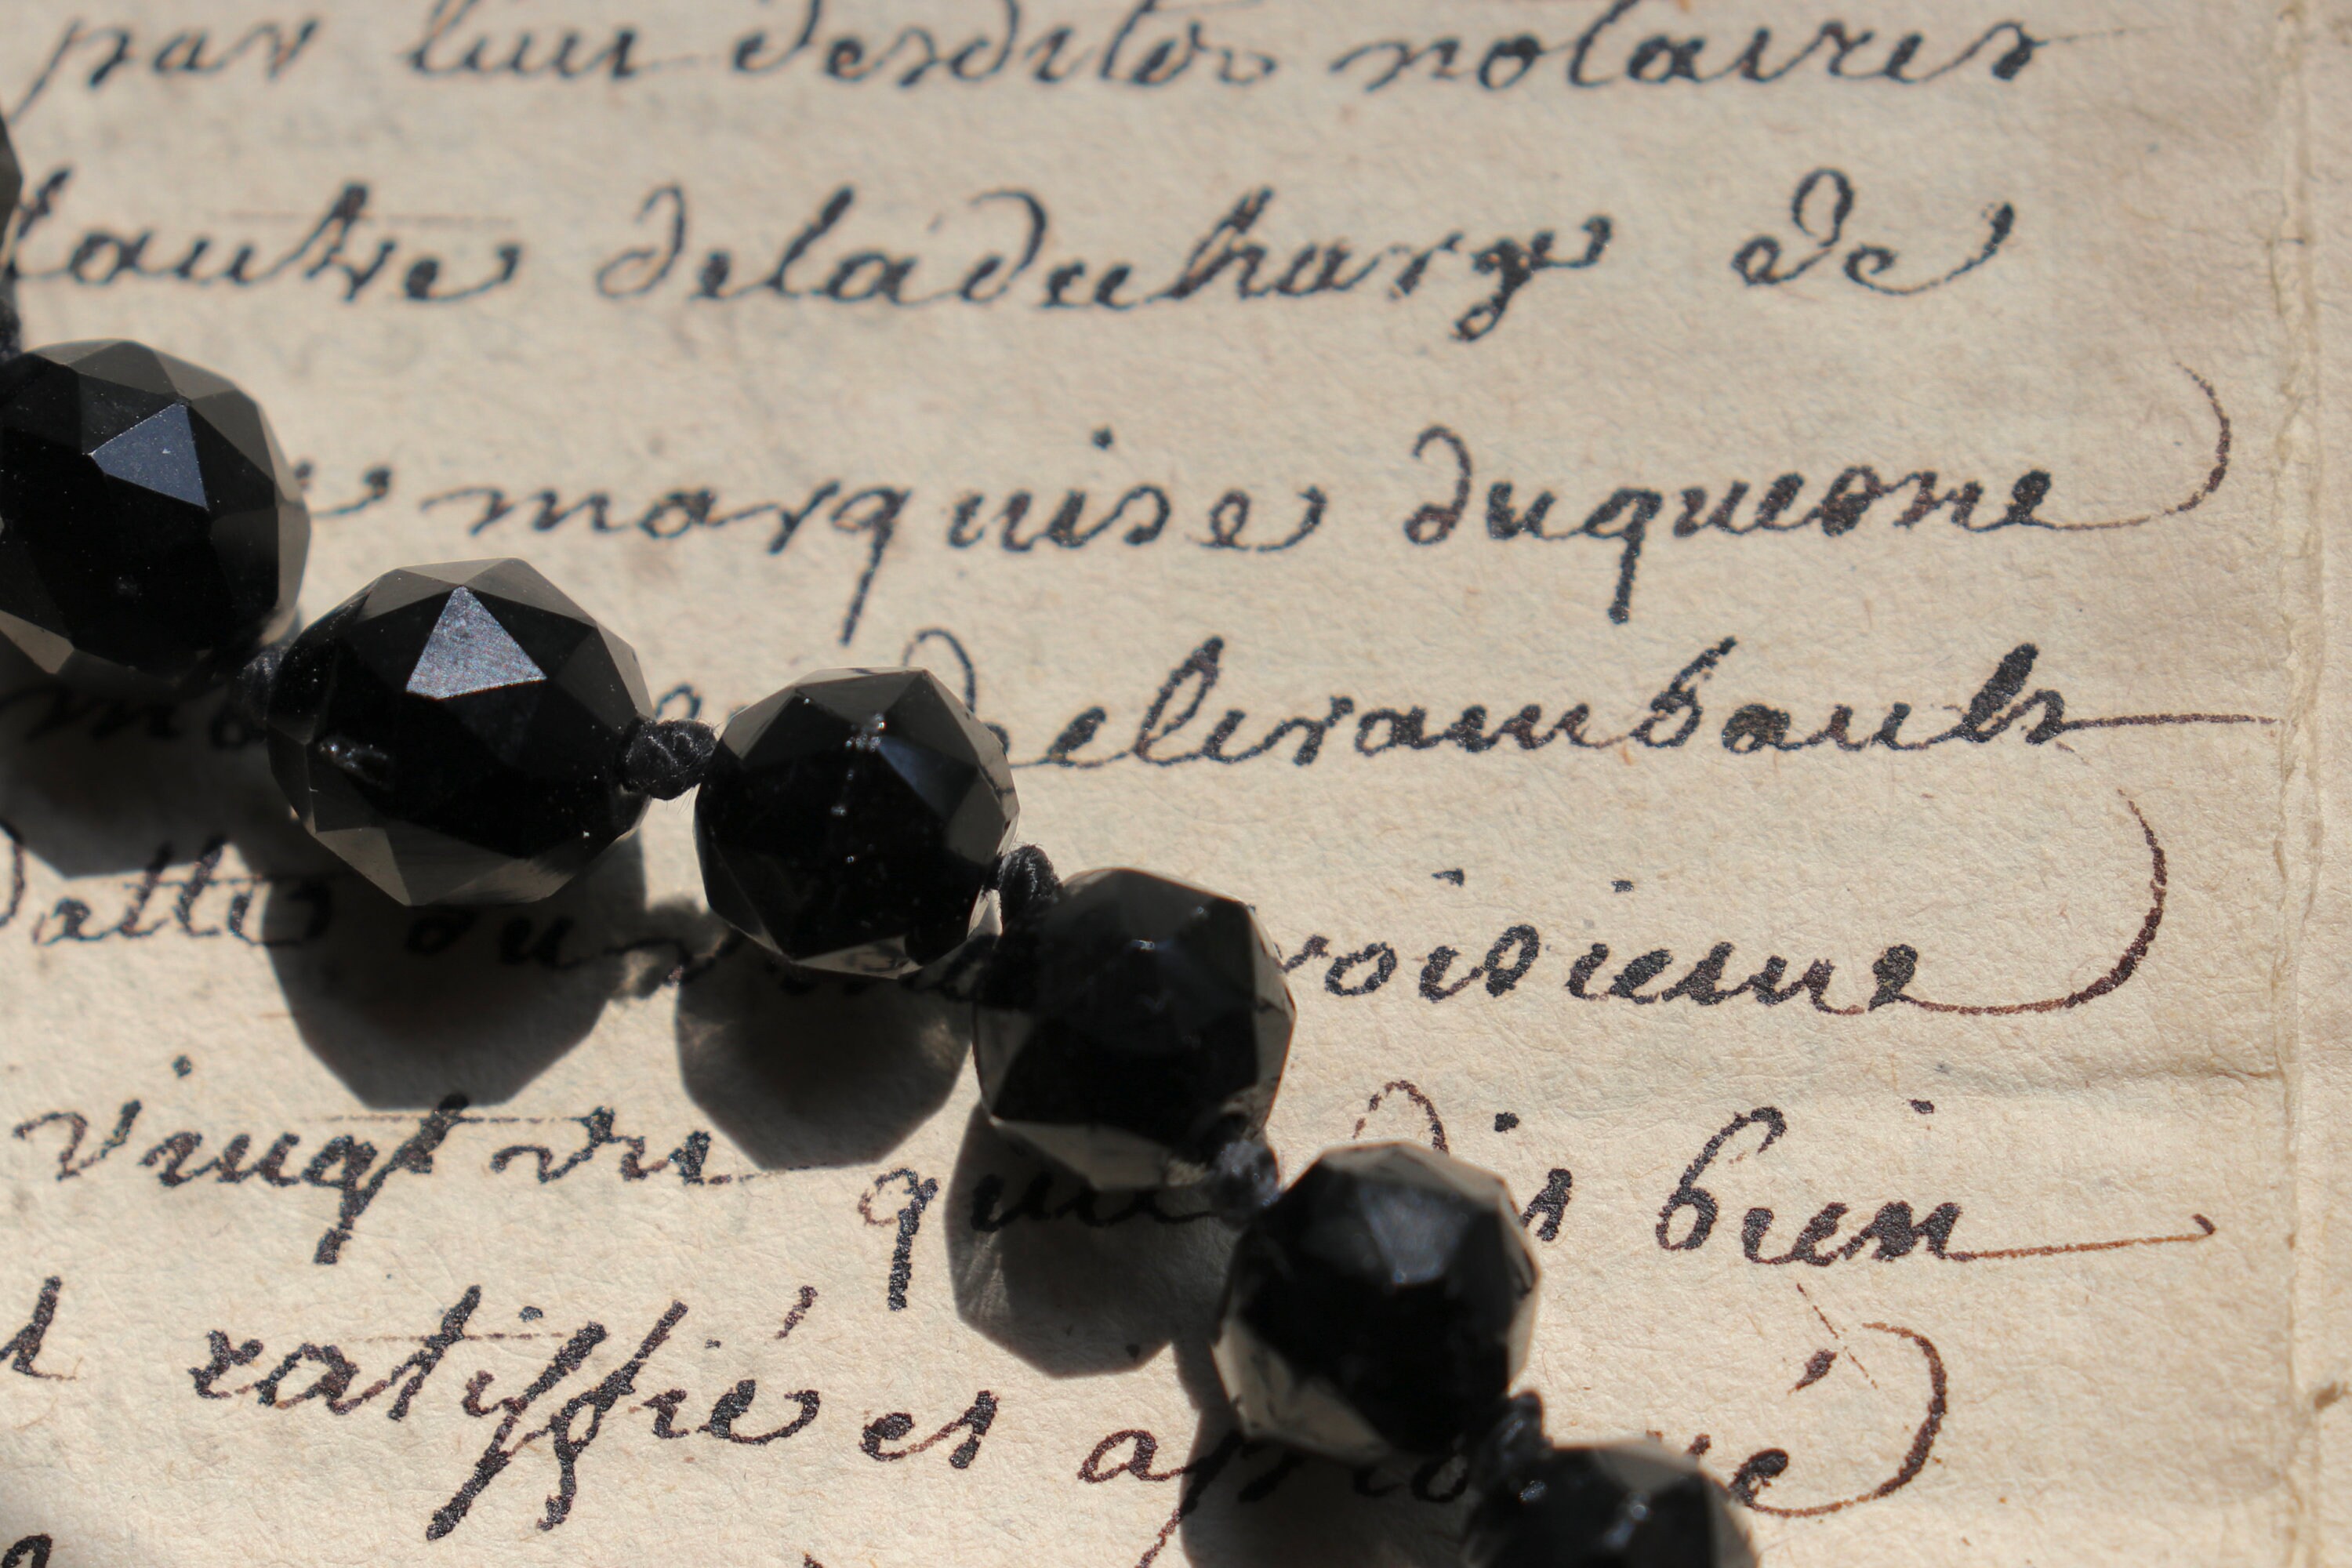 par lun desdits notaires
lautre deladecharge de
marquise duquesne
declerambault
dattes du troisieme
vingt du que dis bien
ratiffié et approuvé